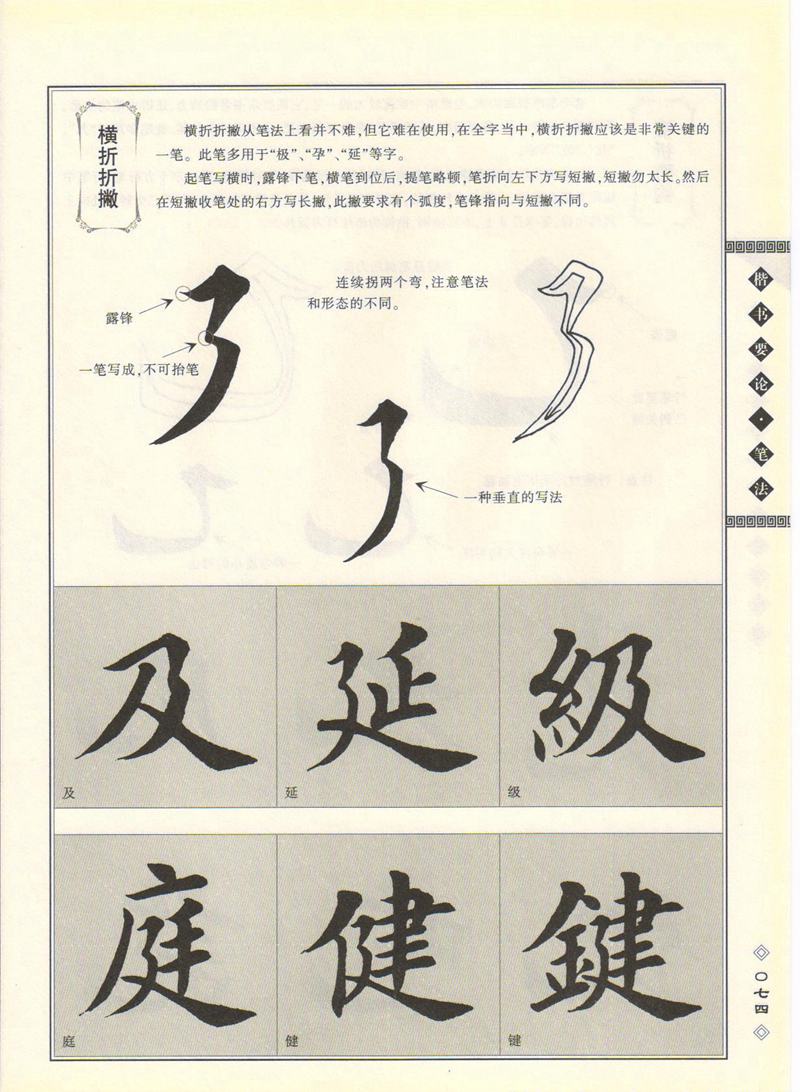 横折折撇
横折折撇从笔法上看并不难,但它难在使用,在全字当中,横折折撇应该是非常关键的
一笔。此笔多用于“极”、“孕”、“延”等字。
起笔写横时,露锋下笔,横笔到位后,提笔略顿,笔折向左下方写短撇,短撇勿太长。然后
在短撇收笔处的右方写长撇,此撇要求有个弧度,笔锋指向与短撇不同。
连续拐两个弯,注意笔法
和形态的不同。
露锋
一笔写成,不可抬笔
一种垂直的写法
及
延
級
及
延
级
庭
健
鍵
庭
健
键
楷书要论·笔法
〇七四